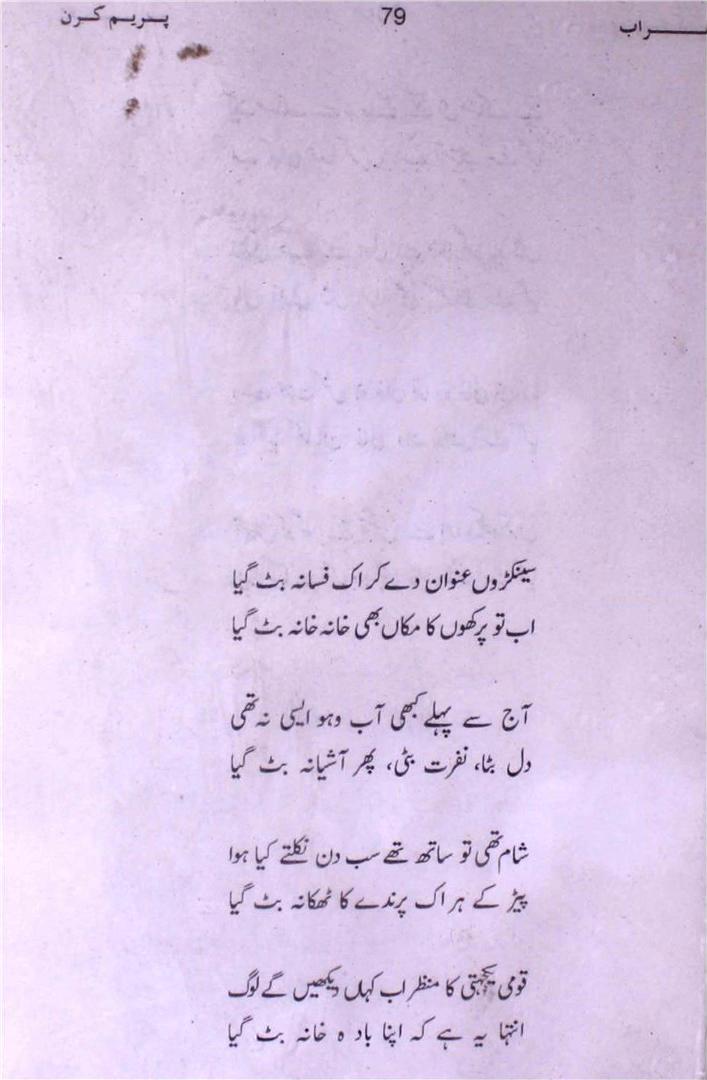 پریم کرن 79 ــراب
سینکڑوں عنوان دے کر اک فسانہ بٹ گیا
اب تو پرکھوں کا مکاں بھی خانہ خانہ بٹ گیا
آج سے پہلے کبھی آب وہو ایسی نہ تھی
دل بٹا، نفرت بٹی، پھر آشیانہ بٹ گیا
شام تھی تو ساتھ تھے سب دن نکلتے کیا ہوا
پیڑ کے ہر اک پرندے کا ٹھکانہ بٹ گیا
قومی یکجہتی کا منظر اب کہاں دیکھیں گے لوگ
انتہا یہ ہے کہ اپنا باد ہ خانہ بٹ گیا